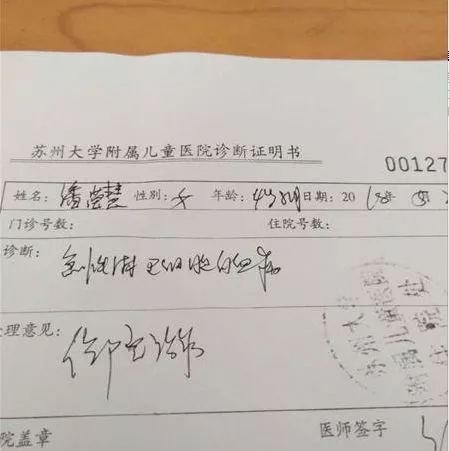 苏州大学附属儿童医院诊断证明书
00127
姓名: 潘 慧 性别: 女 年龄: 日期: 20 18年
门诊号数: 住院号数:
诊断: 急性淋巴细胞白血病
处理意见:
住院治疗
苏州大学
附属儿童医院
住院处
院盖章 医师签字